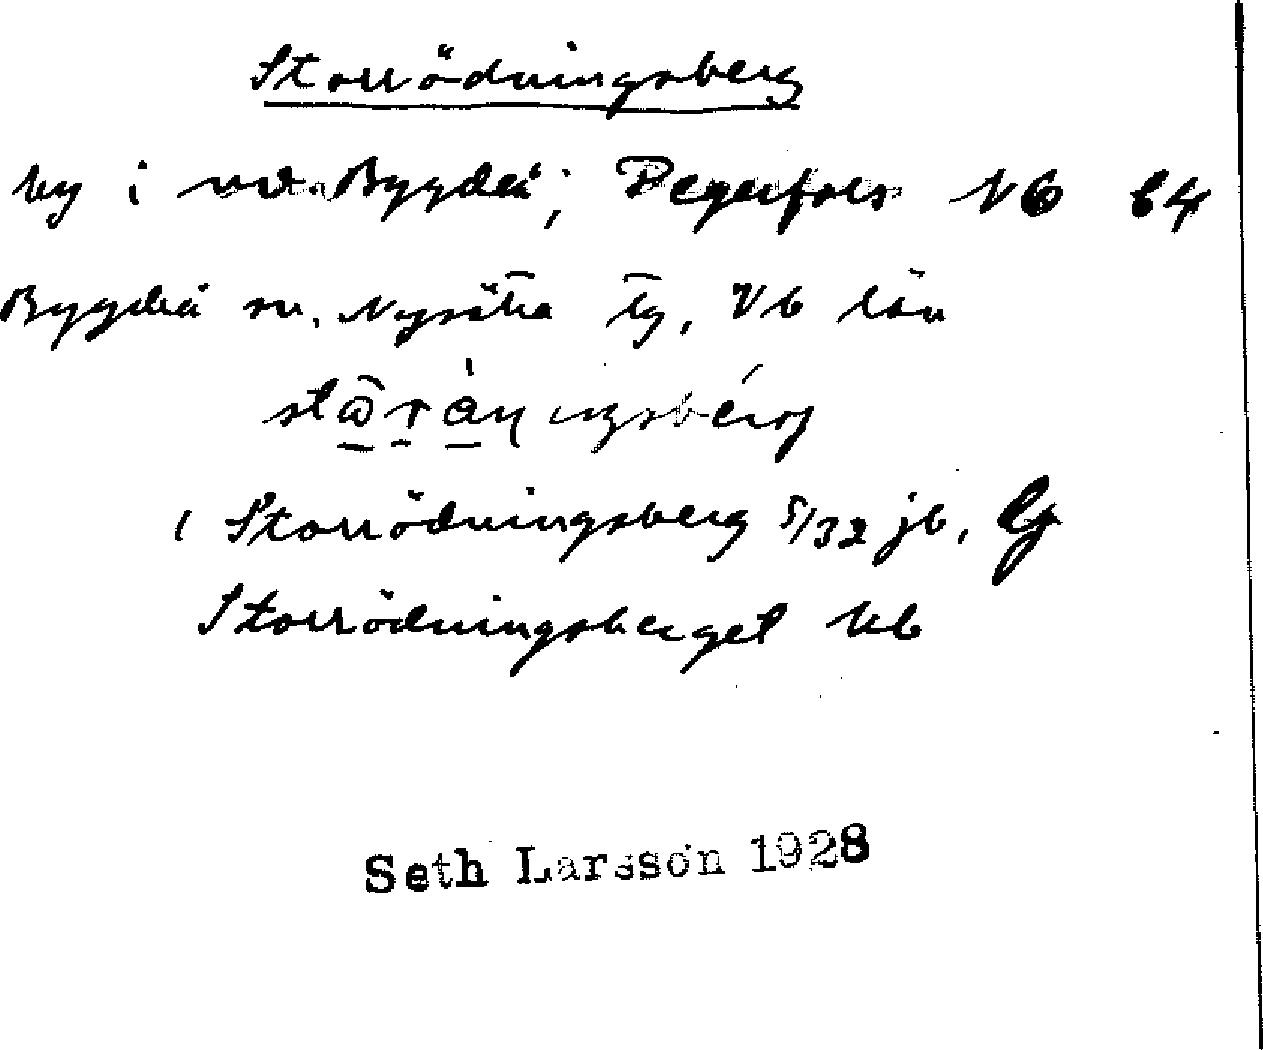 Storrödningsberg
by i nv. Bygdeå; Degerfors NV 64
Bygdeå sn, Nysätra tg, Vb län
Storrödningsberg 5/32 jb,
Storrödningsberget
Seth Larsson 1928